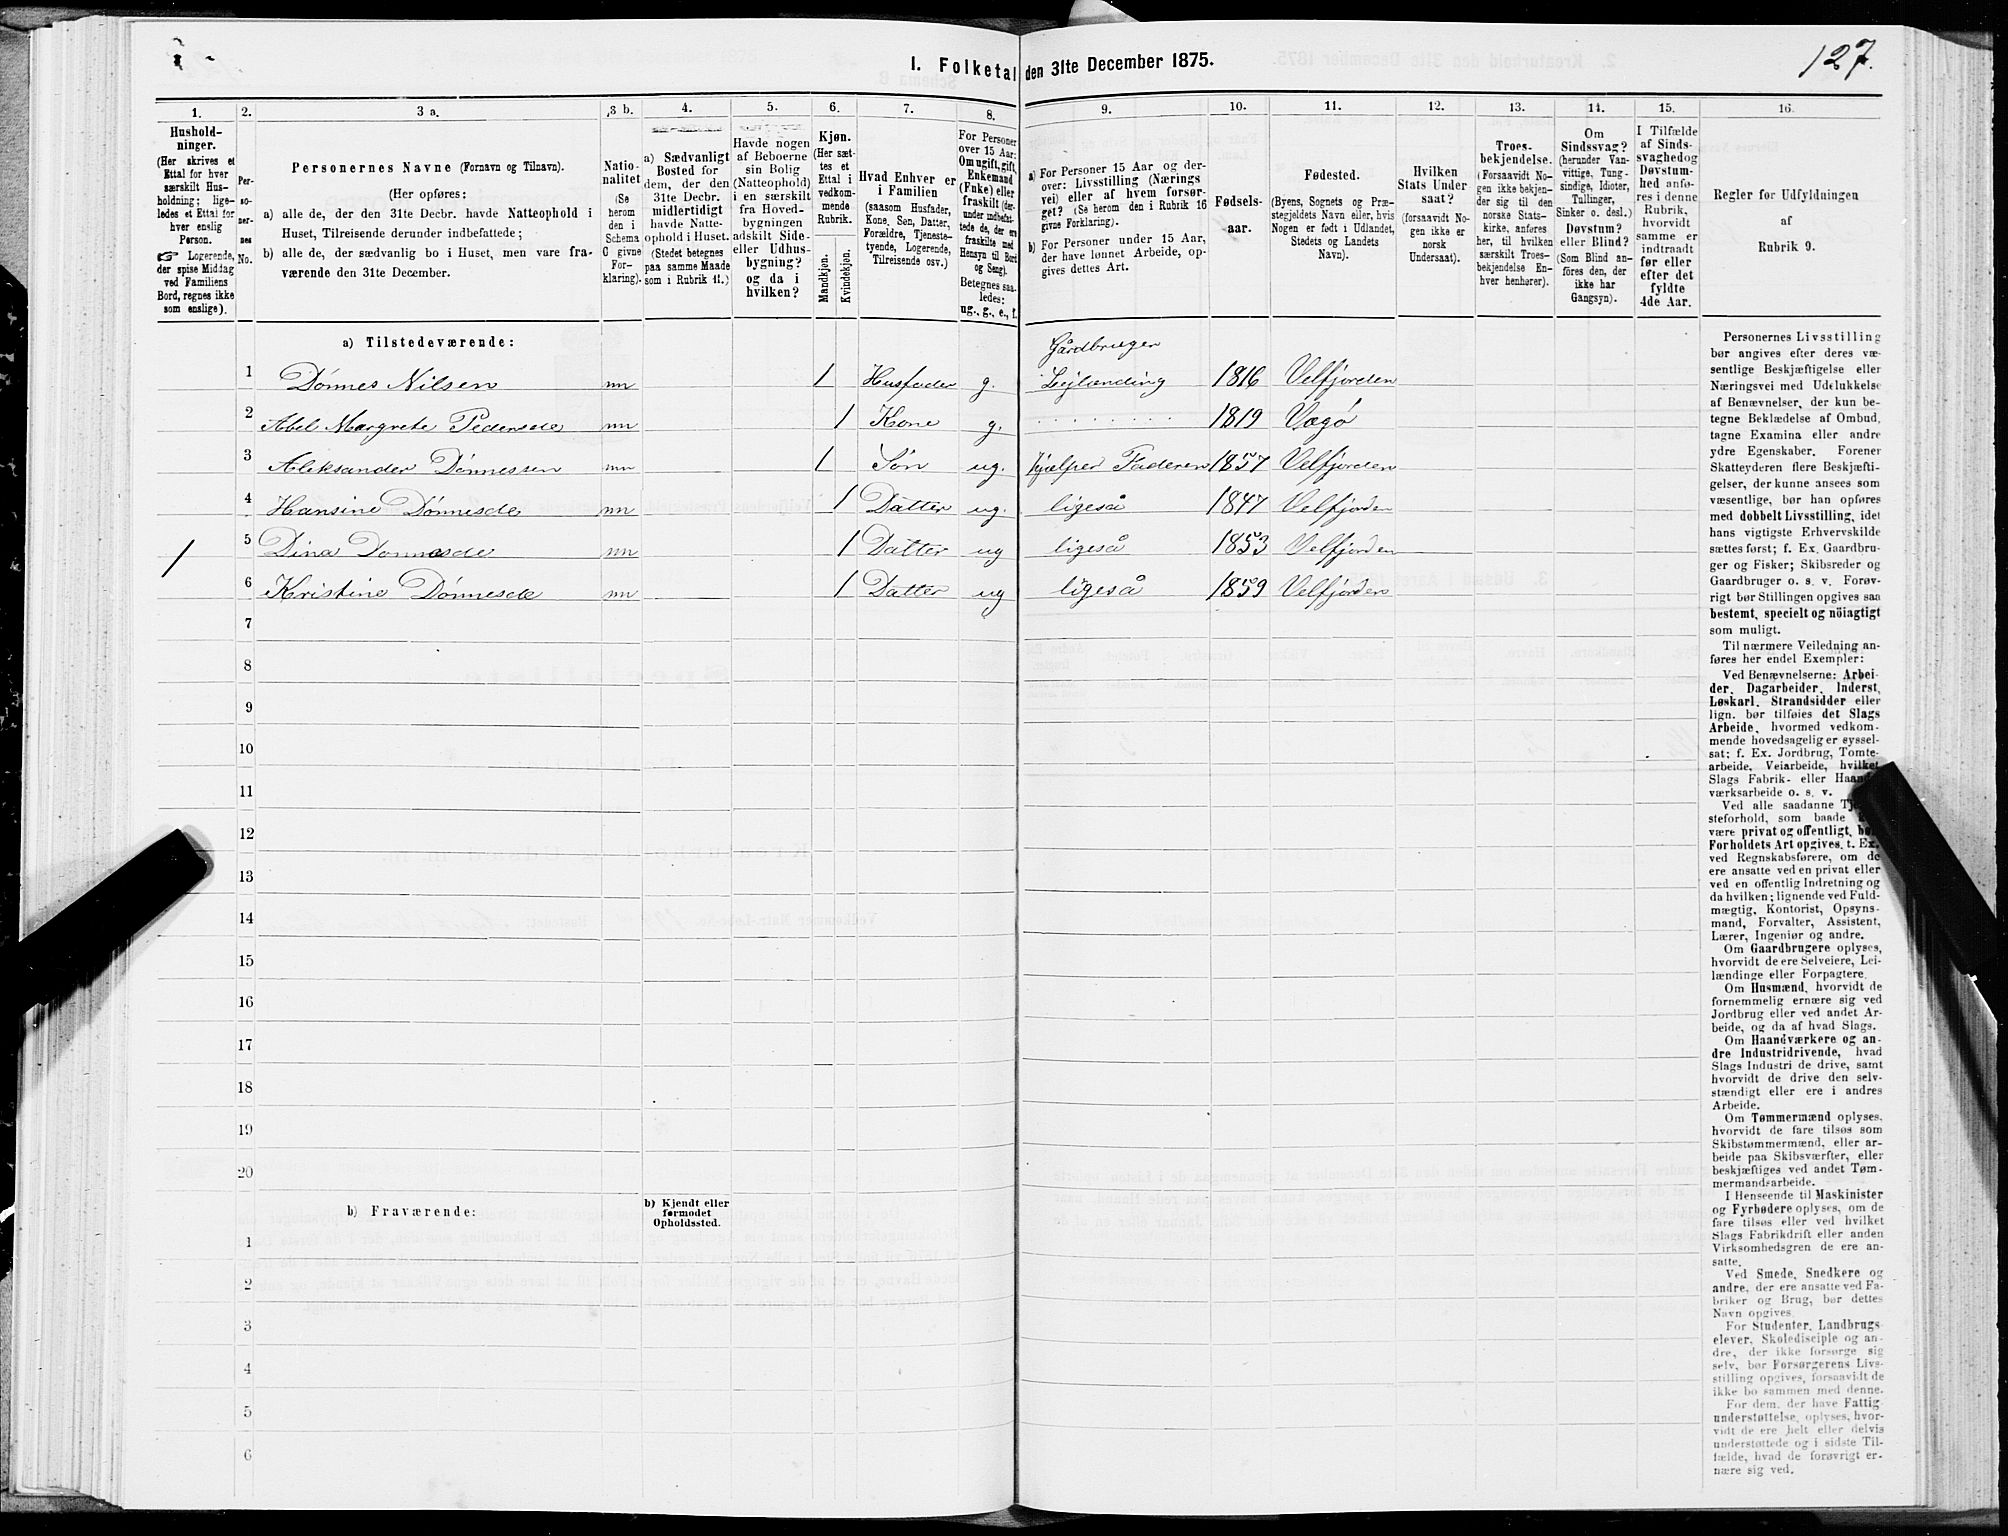 127.
I. Folketal den 31te December 1875.
1. 2. 3 a. 3 b. 4. 5. 6. 7. 8. 9. 10. 11. 12. 13. 14. 15. 16.
Hushold-
ninger.
(Her skrives et
Ettal for hver
særskilt Hus-
holdning; lige-
ledes et Ettal for
hver enslig
Person.
☞ Logerende,
der spise Middag
ved Familiens
Bord, regnes ikke
som enslige).
Per-
so-
ner-
nes
No.
Personernes Navne (Fornavn og Tilnavn).
(Her opføres:
a) alle de, der den 31te Decbr. havde Natteophold i
Huset, Tilreisende derunder indbefattede;
b) alle de, der sædvanlig bo i Huset, men vare fra-
værende den 31te December.
Natio-
nalitet
(Se
herom
den i
Schema
C givne
For-
klaring).
a) Sædvanligt
Bosted for
dem, der den
31te Decbr.
midlertidigt
havde Natte-
ophold i Huset.
(Stedet betegnes
paa samme Maade
som i Rubrik 11.)
Havde nogen
af Beboerne
sin Bolig
(Natteophold)
i en særskilt
fra Hoved-
bygningen
adskilt Side-
eller Udhus-
bygning?
og da i
hvilken?
Kjøn.
(Her sæt-
tes et
Ettal i
vedkom-
mende
Rubrik.
Mandkjøn.
Kvindekjøn.
Hvad Enhver er
i Familien
(saasom Husfader,
Kone, Søn, Datter,
Forældre, Tjeneste-
tyende, Logerende,
Tilreisende osv.)
For Personer
over 15 Aar:
Om ugift, gift,
Enkemand
(Enke) eller
fraskilt (der-
under indbefat-
tede de, der ere
fraskilte med
Hensyn til Bord
og Seng).
Betegnes saa-
ledes:
ug., g., e., f.
a) For Personer 15 Aar og der-
over: Livsstilling (Nærings
vei) eller af hvem forsør-
get? (Se herom den i Rubrik 16
givne Forklaring).
b) For Personer under 15 Aar,
der have lønnet Arbeide, op-
gives dettes Art.
Fødsels-
aar.
Fødested.
(Byens, Sognets og Præ-
stegjeldets Navn eller, hvis
Nogen er født i Udlandet,
Stedets og Landets
Navn).
Hvilken
Stats Under
saat?
(forsaavidt No-
gen ikke er
norsk
Undersaat).
Troes-
bekjendelse.
(Forsaavidt No-
gen ikke bekjen-
der sig til den
norske Stats-
kirke, anføres
her, til hvilken
særskilt Troes-
bekjendelse En-
hver henhører).
Om
Sindssvag?
(herunder Van-
vittige, Tung-
sindige, Idioter,
Tullinger,
Sinker o. desl.)
Døvstum?
eller Blind?
(Som Blind an-
føres den, der
ikke har
Gangsyn).
I Tilfælde
af Sinds-
svaghed og
Døvstum-
hed anfø-
res i denne
Rubrik,
hvorvidt
samme er
indtraadt
før eller
efter det
fyldte
4de Aar.
Regler for Udfyldningen
af
Rubrik 9.
a) Tilstedeværende:
Gårdbruger
1 Dønnes Nilsen nn 1 Husfader g. Lejlænding 1816 Velfjorden
2 Abel Margrete Pedersde nn 1 Kone g. 1819 Vægø
3 Aleksander Dønnessen nn 1 Søn ug. hjælper Faderen 1857 Velfjorden
4 Hansine Dønnesde nn 1 Datter ug. ligeså 1847 Velfjorden
1 5 Dina Dønnesde nn 1 Datter ug ligeså 1853 Velfjorden
6 Kristine Dønnesde nn 1 Datter ug ligeså 1859 Velfjorden
7
8
9
10
11
12
13
14
15
16
17
18
19
20
b) Fraværende:
b) Kjendt eller
formodet
Opholdssted.
1
2
3
4
5
6
Personernes Livsstilling
bør angives efter deres væ-
sentlige Beskjæftigelse eller
Næringsvei med Udelukkelse
af Benævnelser, der kun be-
tegne Beklædelse af Ombud,
tagne Examina eller andre
ydre Egenskaber. Forener
Skatteyderen flere Beskjæfti-
gelser, der kunne ansees som
væsentlige, bør han opføres
med dobbelt Livsstilling, idet
hans vigtigste Erhvervskilde
sættes først; f. Ex. Gaardbru-
ger og Fisker; Skibsreder og
Gaardbruger o. s. v. Forøv-
rigt bør Stillingen opgives saa
bestemt, specielt og nöiagtigt
som muligt.
Til nærmere Veiledning an-
føres her endel Exempler:
Ved Benævnelserne: Arbei-
der, Dagarbeider, Inderst,
Løskarl, Strandsidder eller
lign. bør tilføies det Slags
Arbeide, hvormed vedkom-
mende hovedsagelig er syssel-
sat; f. Ex. Jordbrug, Tomte-
arbeide, Veiarbeide, hvilket
Slags Fabrik- eller Haand-
værksarbeide o. s. v.
Ved alle saadanne Tje-
steforhold, som baade
være privat og offentligt, bør
Forholdets Art opgives, t. Ex.
ved Regnskabsførere, om de
ere ansatte ved en privat eller
ved en offentlig Indretning og
da hvilken; lignende ved Fuld-
mægtig, Kontorist, Opsyns-
mand, Forvalter, Assistent,
Lærer, Ingeniør og andre.
Om Gaardbrugere oplyses,
hvorvidt de ere Selveiere, Lei-
lændinge eller Forpagtere.
Om Husmænd, hvorvidt de
fornemmelig ernære sig ved
Jordbrug eller ved andet Ar-
beide, og da af hvad Slags.
Om Haandværkere og an-
dre Industridrivende, hvad
Slags Industri de drive, samt
hvorvidt de drive den selv-
stændigt eller ere i andres
Arbeide.
Om Tømmermænd oplyses,
hvorvidt de fare tilsøs som
Skibstømmermænd, eller ar-
beide paa Skibsværfter, eller
beskjæftiges ved andet Tøm-
mermandsarbeide.
I Henseende til Maskinister
og Fyrbødere oplyses, om de
fare tilsøs eller ved hvilket
Slags Fabrikdrift eller anden
Virksomhedsgren de ere an-
satte.
Ved Smede, Snedkere og
andre, der ere ansatte ved Fa-
briker og Brug, bør dettes
Navn opgives.
For Studenter, Landbrugs-
elever, Skoledisciple og an-
dre, der ikke forsørge sig
selv, bør Forsørgerens Livs-
stilling opgives, forsaavidt de
ikke bo sammen med denne.
For dem, der have Fattig
understøttelse, oplyses, hvor-
vidt de ere helt eller delvis
understøttede og i sidste Til-
fælde, hvad de forøvrigt er-
nære sig ved.